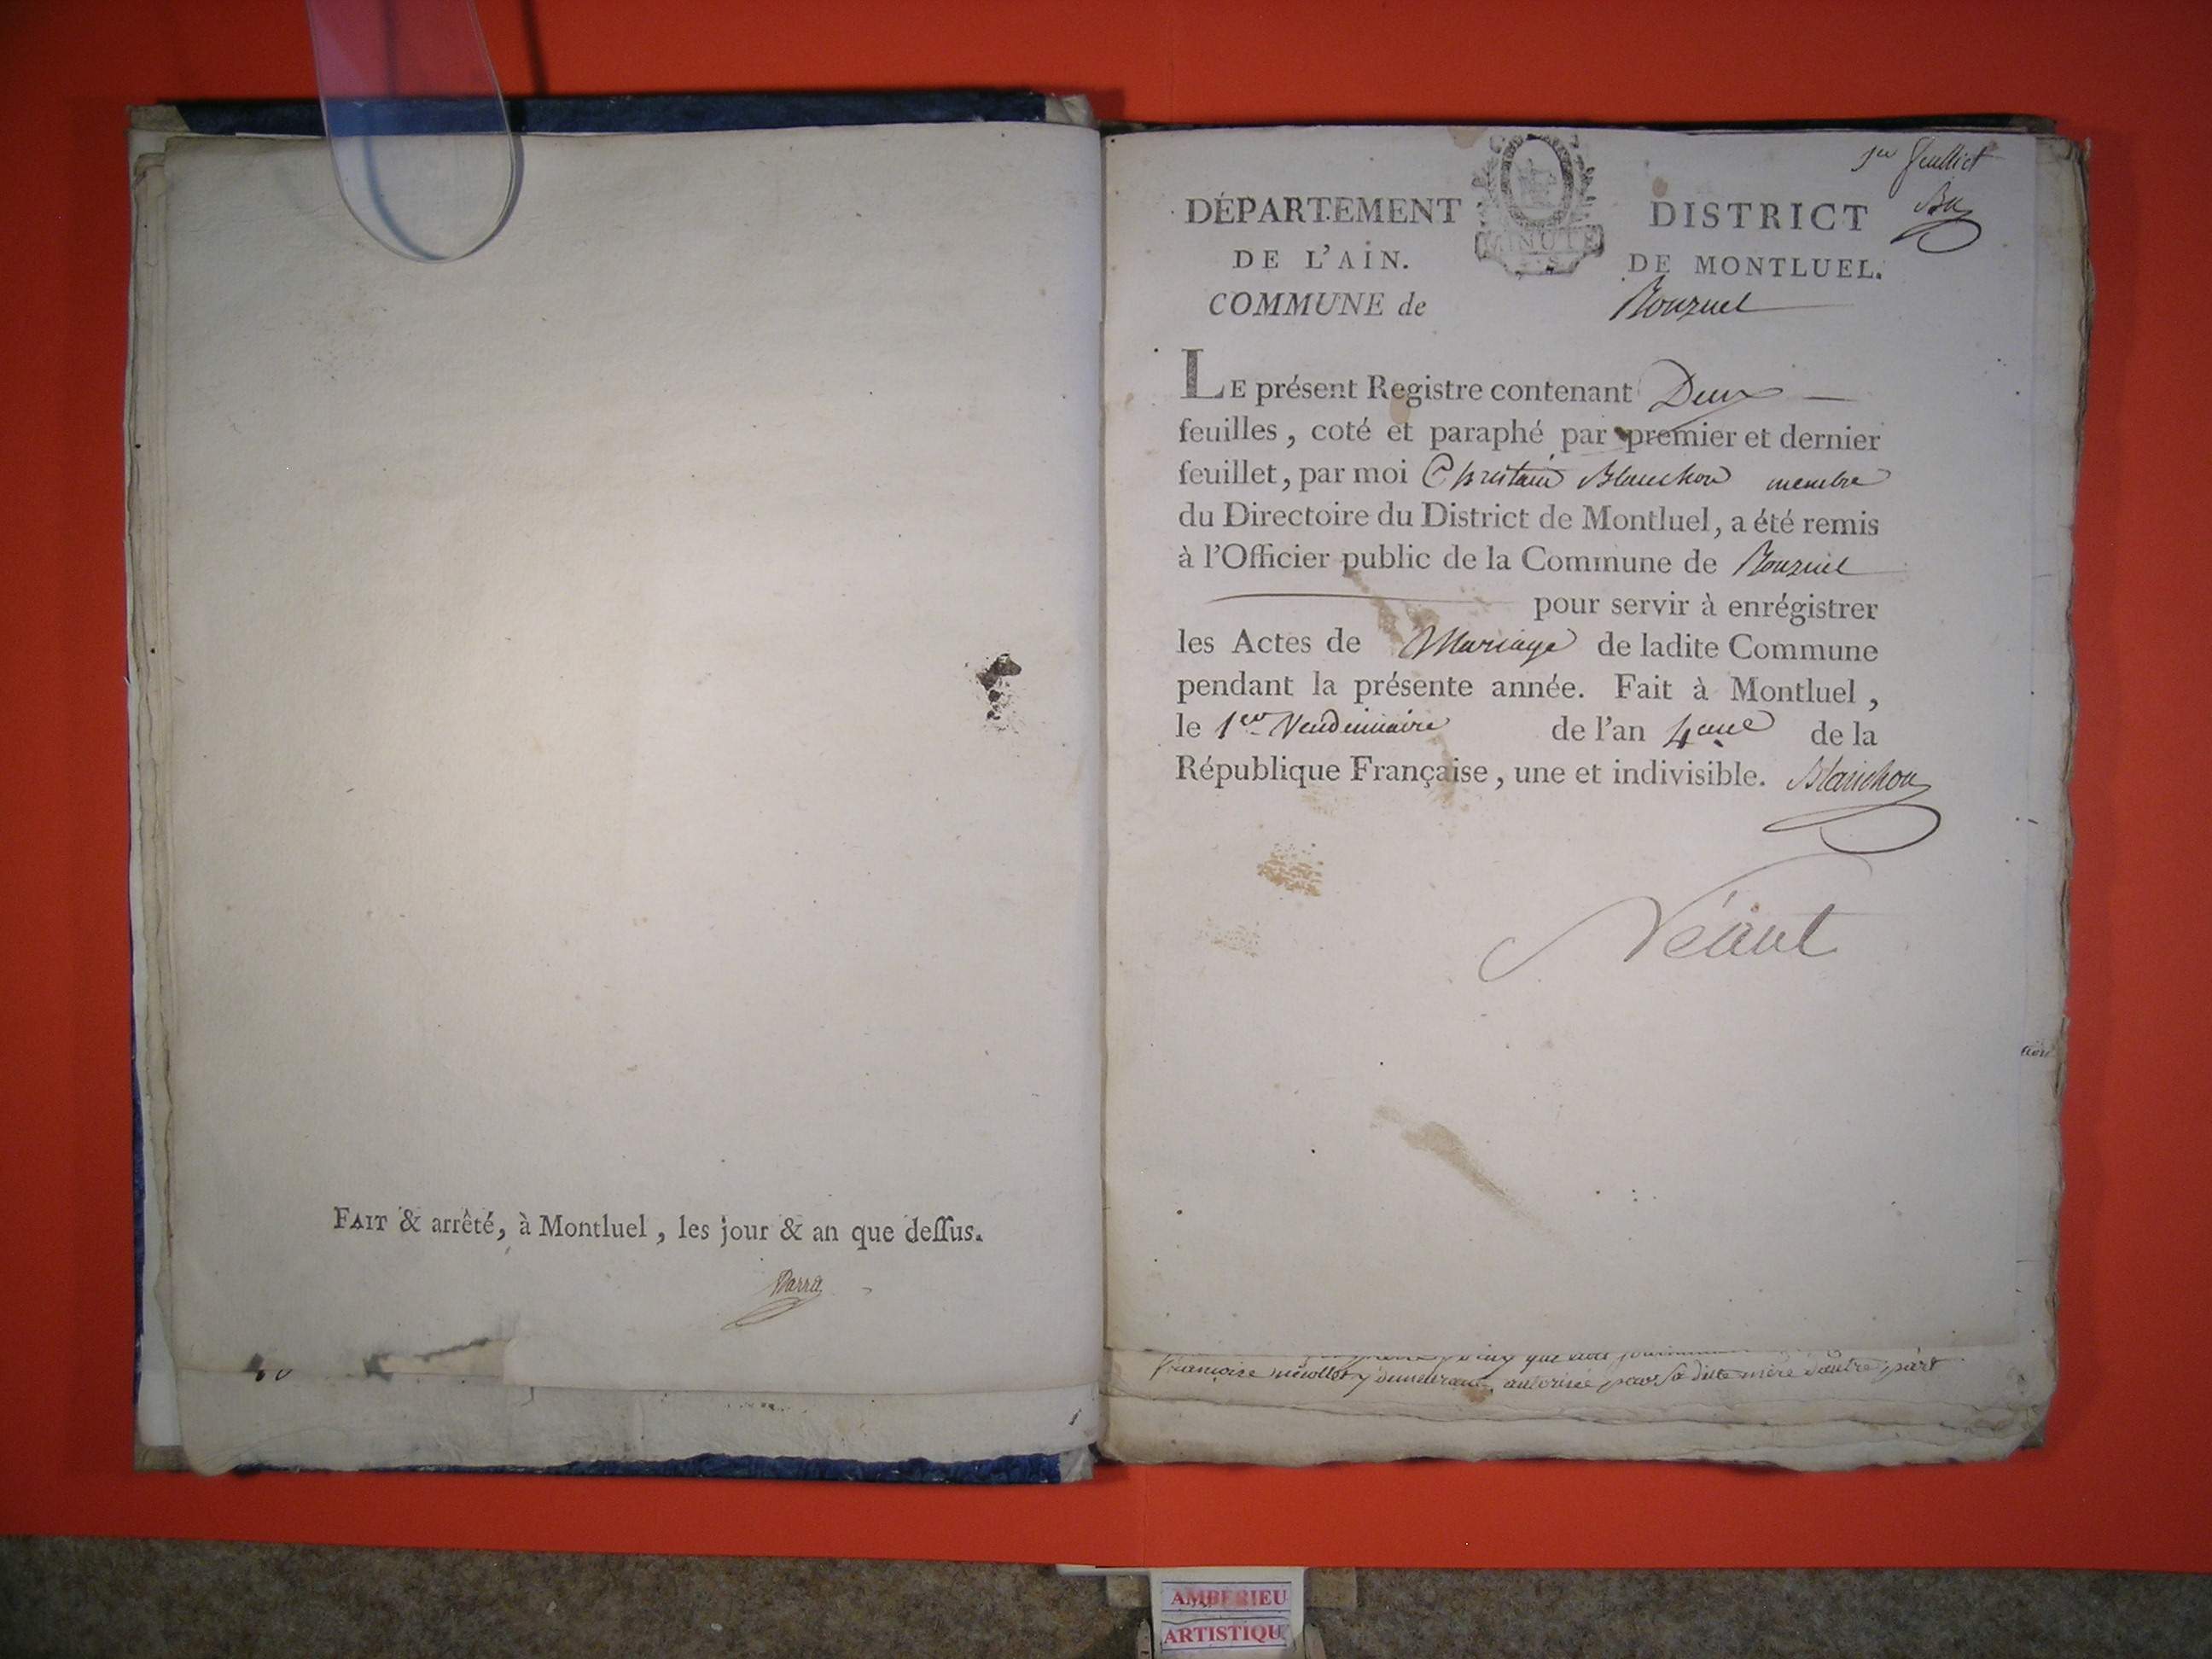 FAIT & arrêté, à Montluel, les jour & an que deſſus.
Barra
1er feuillet
DÉPARTEMENT
DE L'AIN.
COMMUNE de
MINUTE
DISTRICT
DE MONTLUEL.
Rouzuel
LE présent Registre contenant Deux
feuilles, coté et paraphé par premier et dernier
feuillet, par moi Chritain Blanchon membre
du Directoire du District de Montluel, a été remis
à l'Officier public de la Commune de Rouzuel
pour servir à enrégistrer
les Actes de Mariage de ladite Commune
pendant la présente année. Fait à Montluel,
le 1er Vendemiaire de l'an 4eme de la
République Française, une et indivisible. Blanchon
Néant
francoise autorisée par sa dite mère d'autre part
AMBERIEU
ARTISTIQU